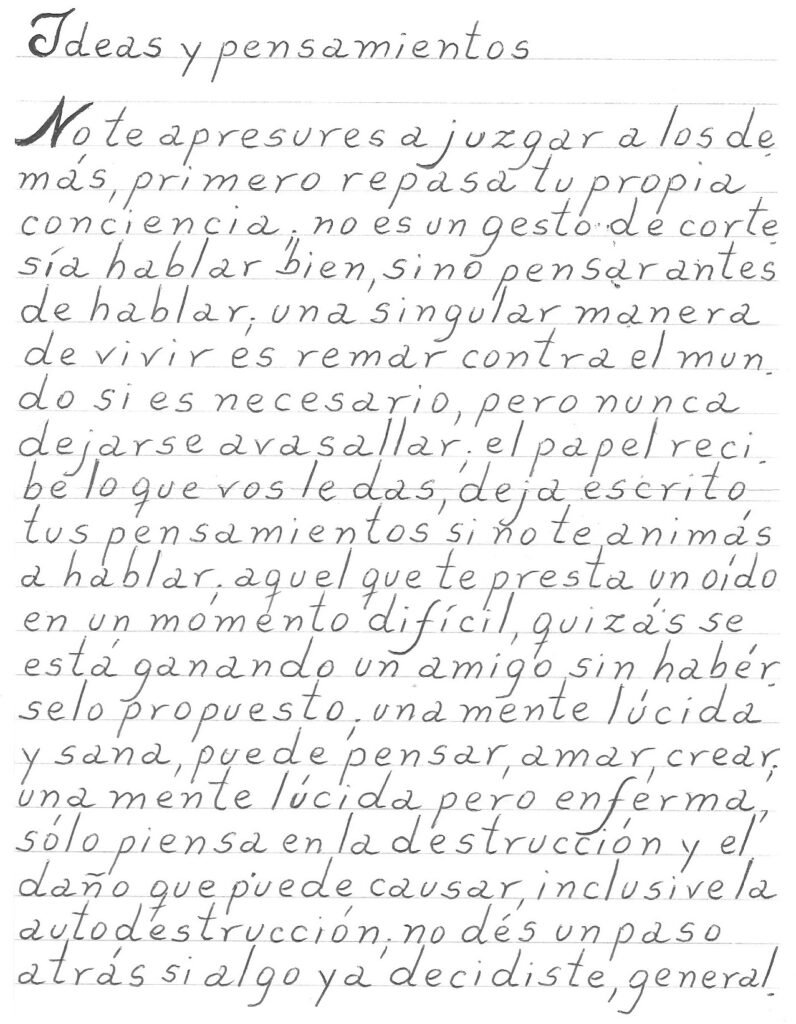 Ideas y pensamientos
No te apresures a juzgar a los de
más, primero repasa tu propia
conciencia; no es un gesto de corte
sía hablar bien, sino pensar antes
de hablar; una singular manera
de vivir es remar contra el mun_
do si es necesario, pero nunca
dejarse avasallar; el papel reci_
be lo que vos le das, deja escrito
tus pensamientos si no te animás
a hablar; aquel que te presta un oído
en un momento difícil, quizás se
está ganando un amigo sin habér_
selo propuesto; una mente lúcida
y sana, puede pensar, amar, crear;
una mente lúcida pero enferma,
sólo piensa en la destrucción y el
daño que puede causar, inclusive la
autodestrucción; no dés un paso
atrás si algo ya decidiste, general_